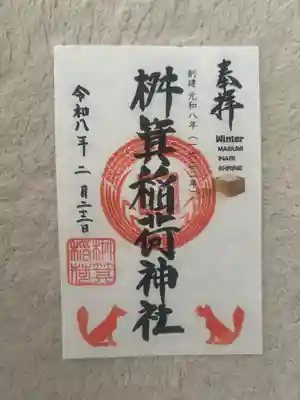 奉拝
Winter
MASUMI
INARI
SHRINE
創建 元和八年（一六二二年）
桝箕稲荷神社
令和八年 二月二十三日